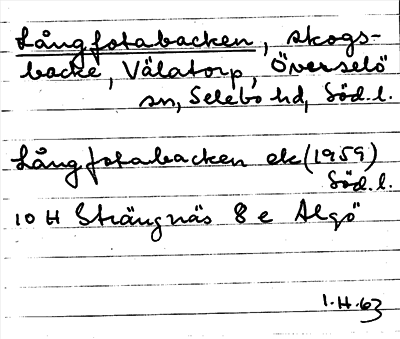 Långfotabacken, skogs-
backe, Välatorp, Överselö
sn, Selebo hd, Söd. l.
Långfotabacken ek (1959)
Söd. l.
10 H Strängnäs 8 e Algö
1.H.63